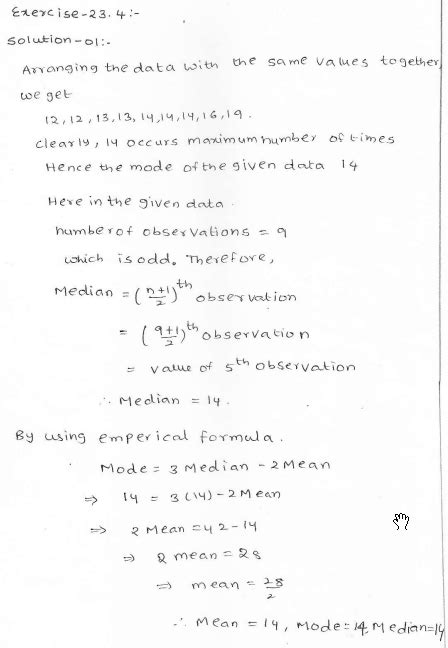 Exercise-23.4:-
Solution-01:-
Arranging the data with the same values together,
we get
12, 12, 13, 13, 14, 14, 14, 16, 19.
clearly, 14 occurs maximum number of times
Hence the mode of the given data 14
Here in the given data.
number of observations = 9
which is odd. Therefore,
Median = (n+1/2)th observation
= (9+1/2)th observation
= value of 5th observation
∴ Median = 14.
By using emperical formula.
Mode = 3 Median - 2 Mean
⇒ 14 = 3(14) - 2 Mean
⇒ 2 Mean = 42 - 14
⇒ 2 mean = 28
⇒ mean = 28/2
∴ Mean = 14, Mode = 14, Median = 14